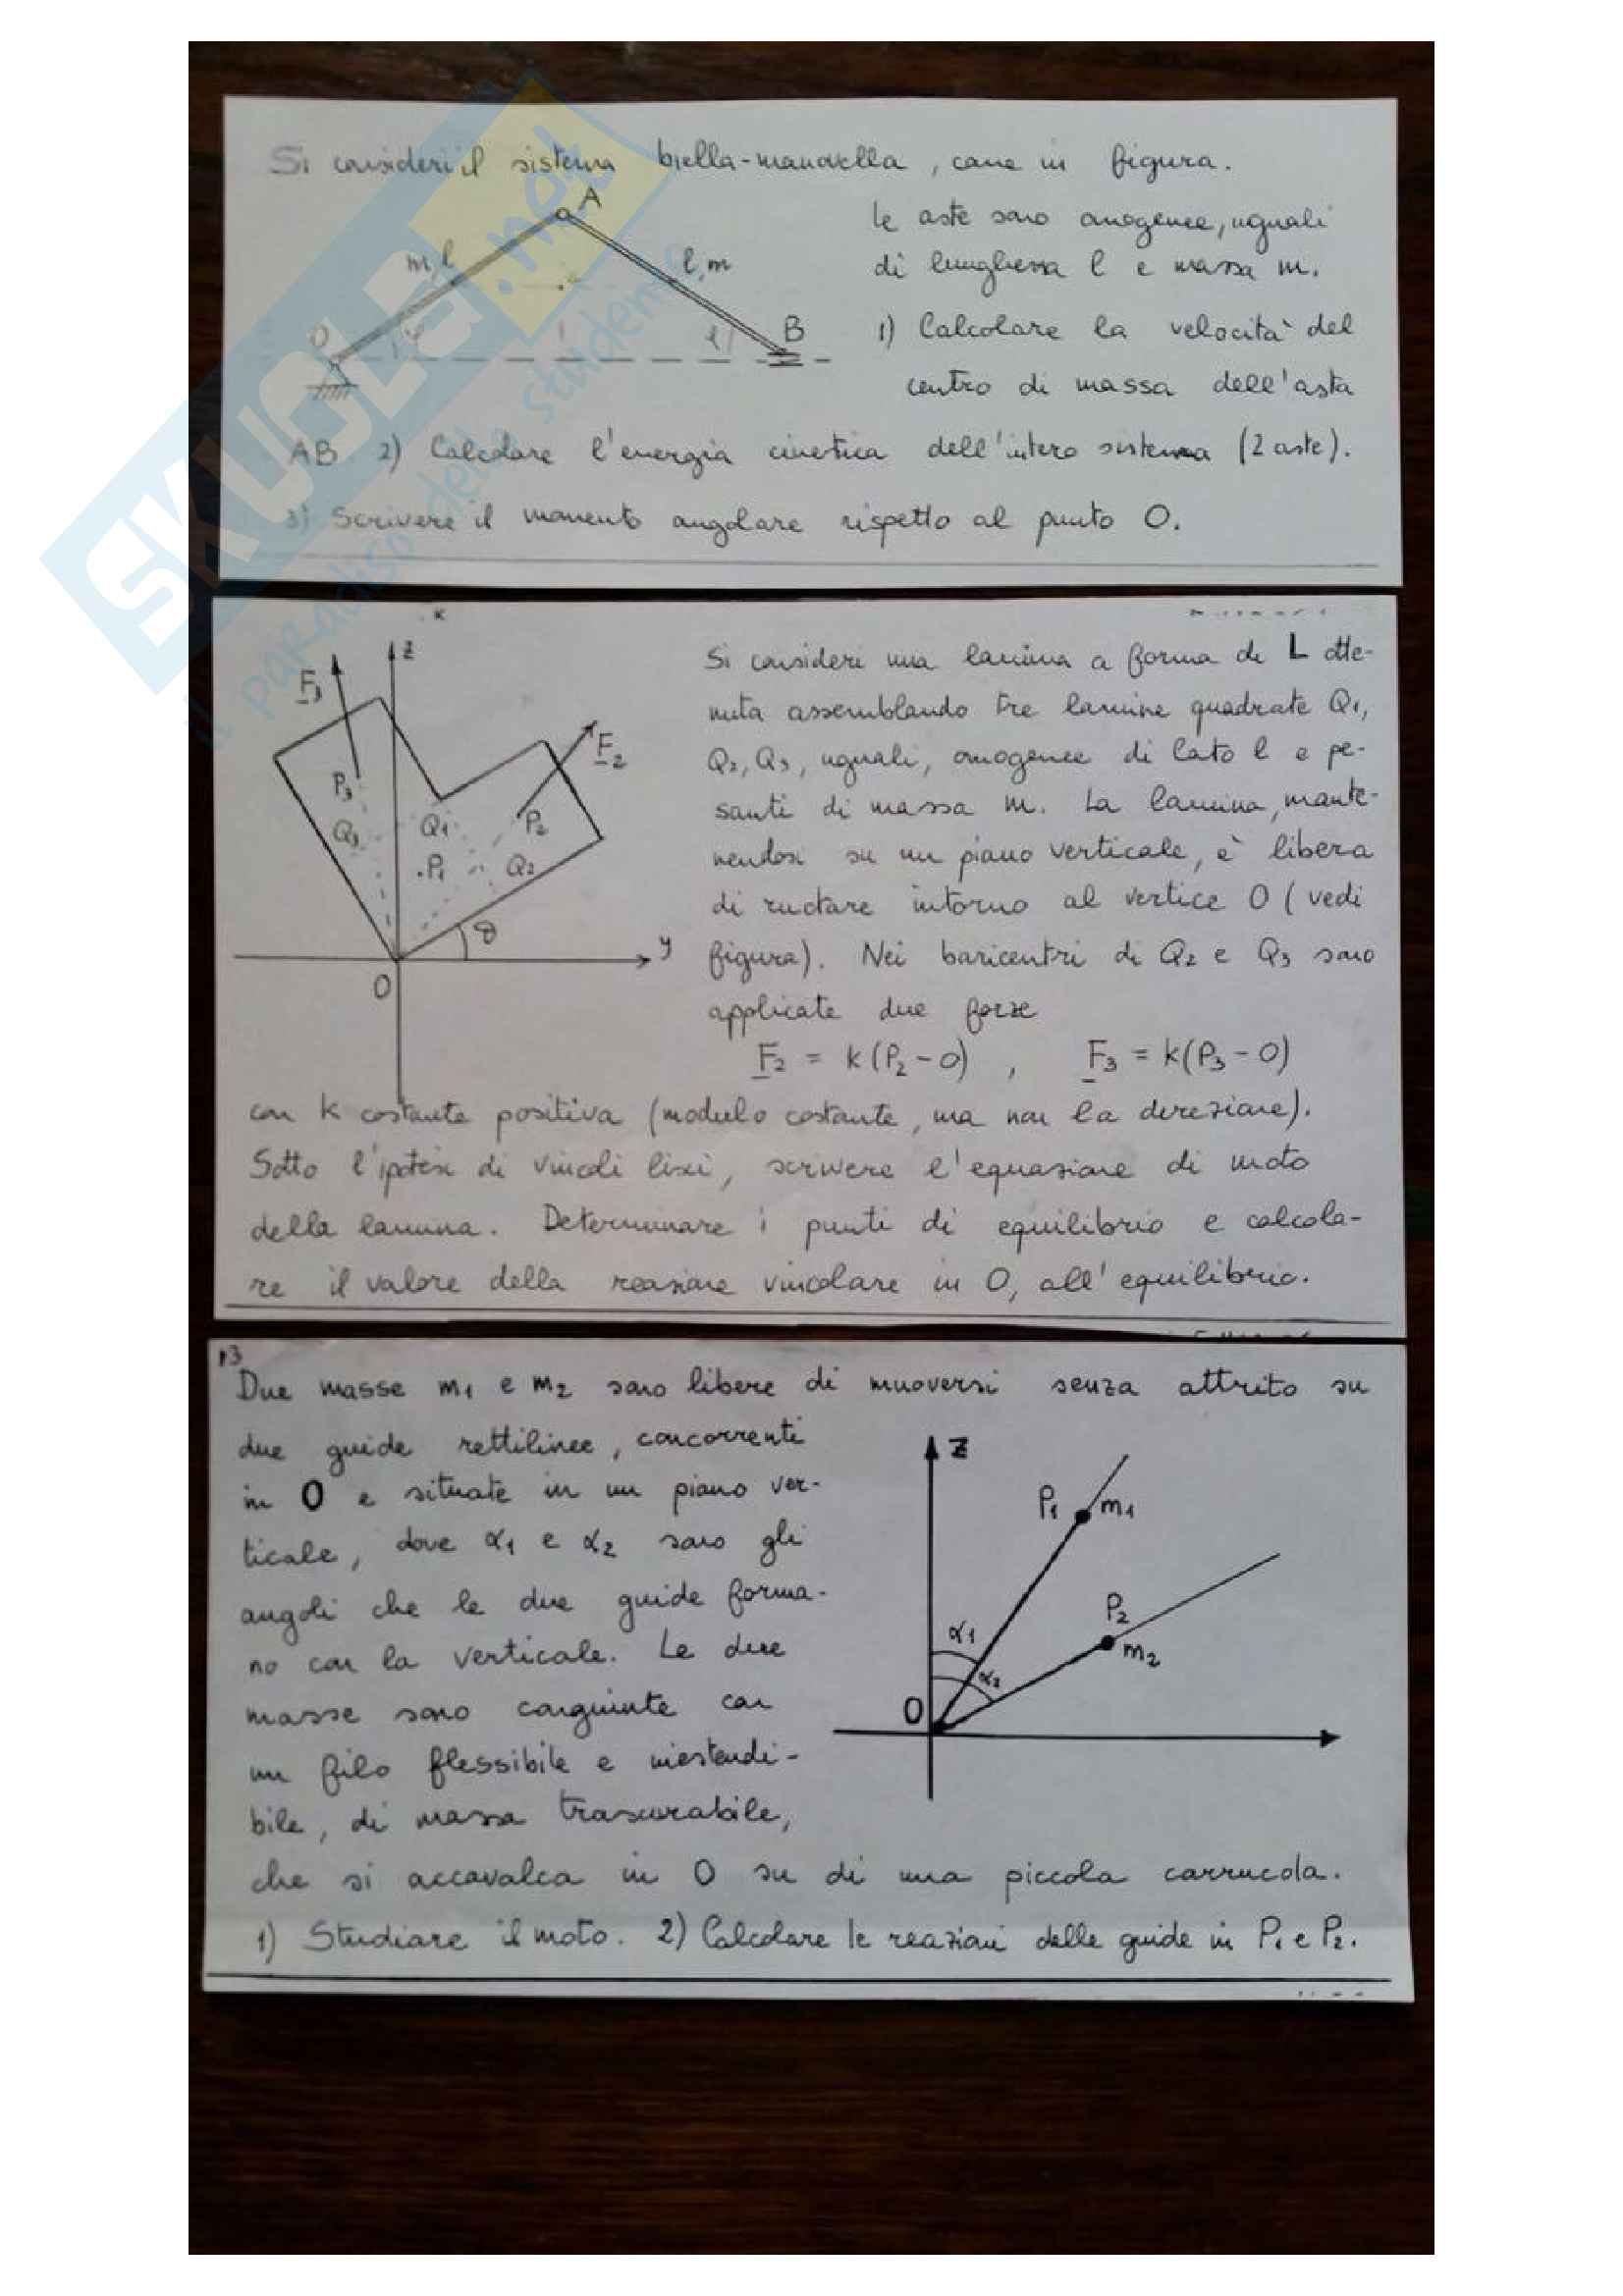 Si consideri il sistema biella-manovella, come in figura.
A
le aste sono omogenee, uguali
m, l
l, m
di lunghezza l e massa m.
O
B
1) Calcolare la velocità del
centro di massa dell'asta
AB 2) Calcolare l'energia cinetica dell'intero sistema (2 aste).
3) Scrivere il momento angolare rispetto al punto O.
SKUOLA.net
il paradiso dello studente
z
Si consideri una lamina a forma di L otte-
F3
nuta assemblando tre lamine quadrate Q1,
F2
Q2, Q3, uguali, omogenee di lato l e pe-
P3
santi di massa m. La lamina, mante-
Q3 Q1 P2
nendosi su un piano verticale, è libera
.P1 Q2
di ruotare intorno al vertice O (vedi
θ
y
figura). Nei baricentri di Q2 e Q3 sono
O
applicate due forze
F2 = k(P2-O) , F3 = k(P3-O)
con k costante positiva (modulo costante, ma non la direzione).
Sotto l'ipotesi di vincoli lisci, scrivere l'equazione di moto
della lamina. Determinare i punti di equilibrio e calcola-
re il valore della reazione vincolare in O, all'equilibrio.
13
Due masse m1 e m2 sono libere di muoversi senza attrito su
due guide rettilinee, concorrenti
in O e situate in un piano ver-
ticale, dove α1 e α2 sono gli
angoli che le due guide forma-
no con la verticale. Le due
masse sono congiunte con
un filo flessibile e inestendi-
bile, di massa trascurabile,
z
P1 m1
P2
m2
α1
α2
O
che si accavalca in O su di una piccola carrucola.
1) Studiare il moto. 2) Calcolare le reazioni delle guide in P1 e P2.